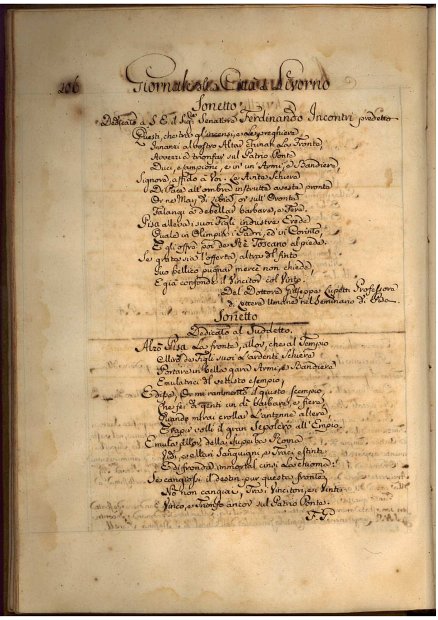 206 Giornale Città di Livorno
Sonetto
Dedicato a S. E. il Sigr. Senatore Ferdinando Incontri predetto
Questi, che tra gl'incensi, e le preghiere
Innanzi al vostro Altar chinan la Fronte
Avvezzi a trionfar sul Patrio Ponte
Duci, e Campioni, e in un Armi, e Bandiere,
Signora affido a Voi: Le Schiere
Di Pace all'ombra instrutte a pronte
Or ne, or sull'Oronte
Falangi a debellar barbare, e Fere.
Pisa alleva i suoi Figli industre Erede
Quale in Olimpia i Padri, ed in Corinto
E gli offre poi del Rè Toscano al piede.
Se l'offerta, altra di finto
Suo bellico pugnar mercè non chiede,
E già confonde il Vincitor col Vinto.
Del Dottore Giuseppe Lupetti Professore
di Lettere Umane nel Seminario di Pisa
Sonetto
Dedicato al Suddetto.
Alzò Pisa La fronte, allor, che al Tempio
de Figli suoi L'ardente Schiera
Portare in bella gara Armi, e Bandiera
Emulatrice di vetusto esempio,
E disse, Or mi rammento il giusto scempio,
Che fei di genti un dì barbare, e fiere,
Quando mirai crollar L'antenne altere
E saper volli il gran Sepolcro all'Empio.
Emula allor della superba Roma
Vidi, Sanguigni, e Traci estinti
Ed'fronda immortal cinsi La chioma:
Se cangiossi il destin per questa fronte,
No non cangiar, Tra Vincitori, e i Vinti
Vinco, e Trionfo ancor sul Patrio Ponte.
F. P.